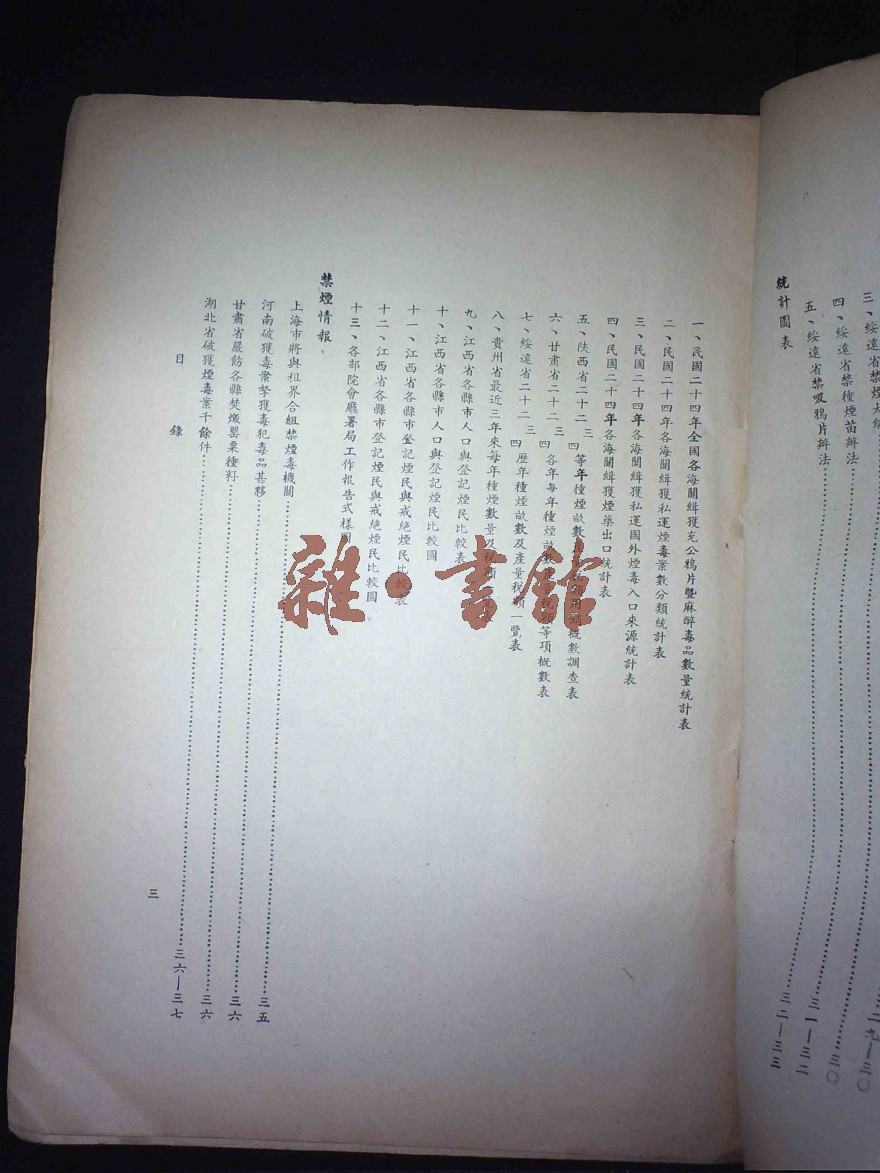 三、綏遠省禁煙大綱……二九—三〇
四、綏遠省禁種煙苗辦法……三〇
五、綏遠省禁吸鴉片辦法……三一—三二
統計圖表……三二—三三
一、民國二十四年全國各海關緝獲充公鴉片暨麻醉毒品數量統計表
二、民國二十四年各海關緝獲私運煙毒案數分類統計表
三、民國二十四年各海關緝獲私運國外煙毒入口來源統計表
四、民國二十四年各海關緝獲煙藥出口統計表
五、陝西省二十二三四等年種煙畝數概數調查表
六、甘肅省二十二三四各年每年種煙畝數等項概數表
七、綏遠省二十二三四歷年種煙畝數及產量稅額一覽表
八、貴州省最近三年來每年種煙數量及
九、江西省各縣市人口與登記煙民比較表
十、江西省各縣市人口與登記煙民比較圖
十一、江西省各縣市登記煙民與戒絕煙民比較表
十二、江西省各縣市登記煙民與戒絕煙民比較圖
十三、各部院會廳署局工作報告式樣圖
禁煙情報
上海市將與租界合組禁煙毒機關……三五
河南破獲毒案拏獲毒犯毒品甚夥……三六
甘肅省嚴飭各縣焚燬罌粟種籽……三六
湖北省破獲煙毒案千餘件……三六—三七
目錄
三
雜·書館